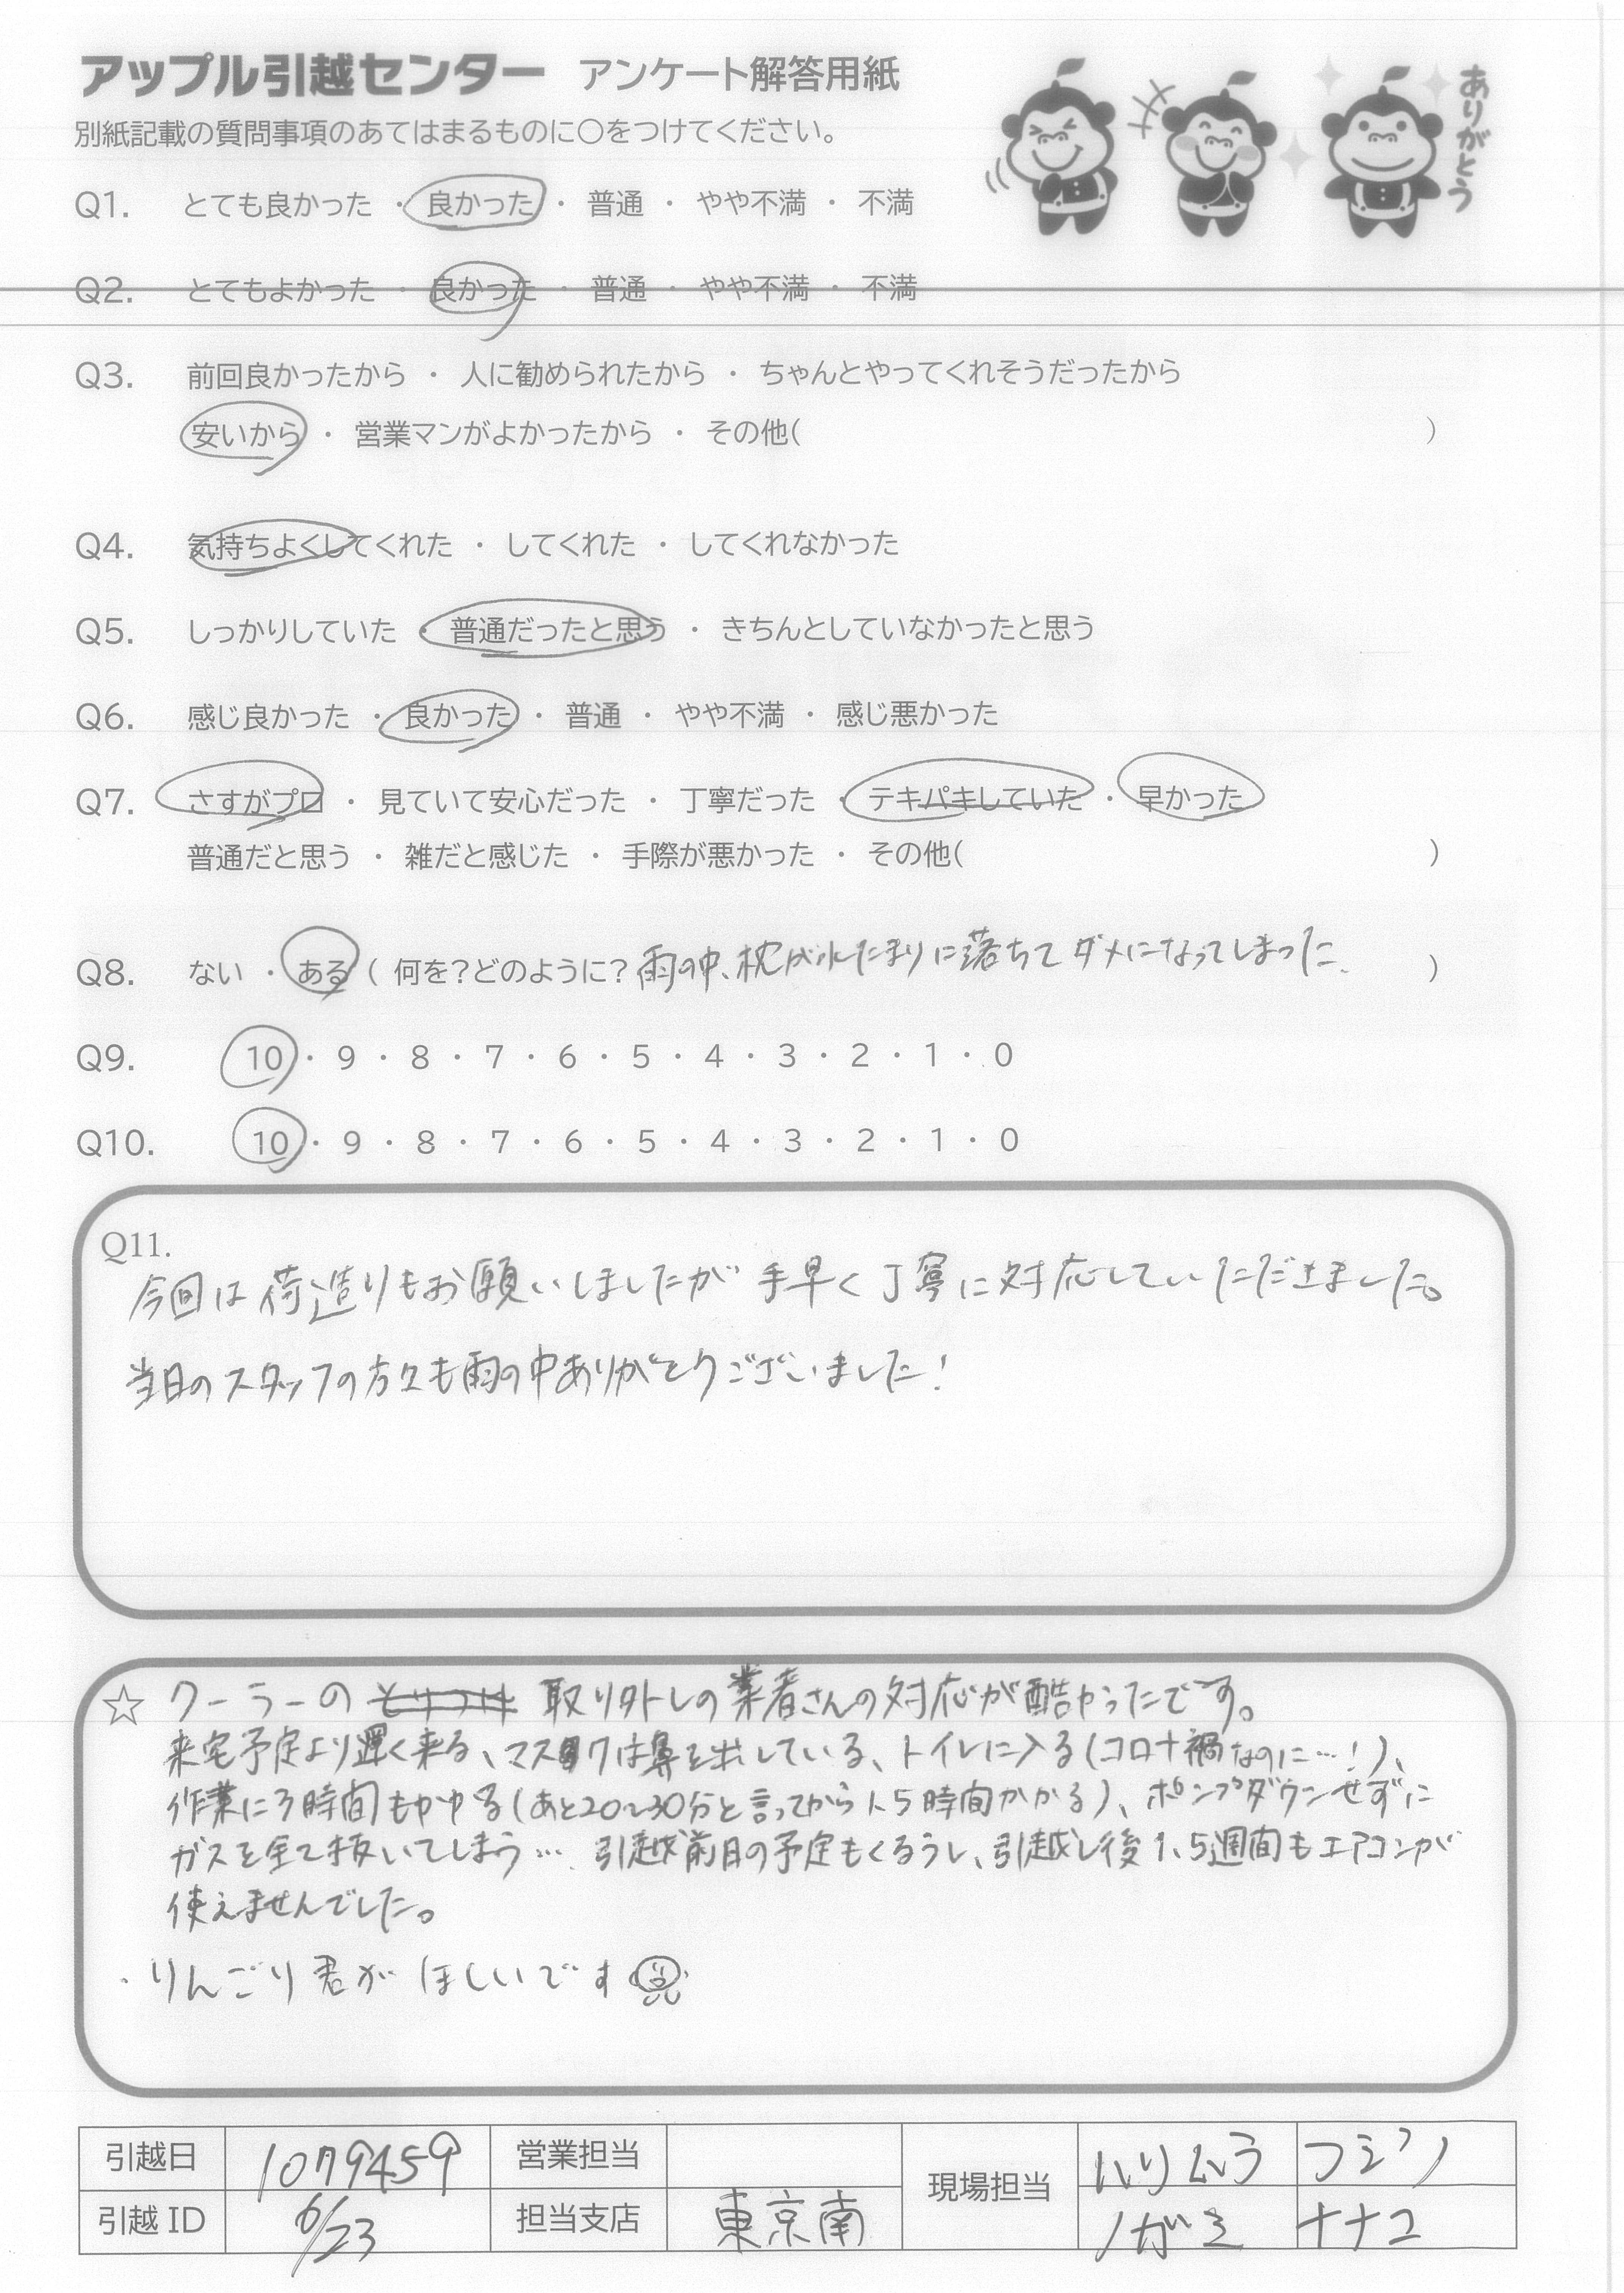 アップル引越センター アンケート解答用紙
別紙記載の質問事項のあてはまるものに○をつけてください。
ありがとう
Q1. とても良かった ・ 良かった ・ 普通 ・ やや不満 ・ 不満
Q2. とてもよかった ・ 良かった ・ 普通 ・ やや不満 ・ 不満
Q3. 前回良かったから ・ 人に勧められたから ・ ちゃんとやってくれそうだったから
安いから ・ 営業マンがよかったから ・ その他( )
Q4. 気持ちよくしてくれた ・ してくれた ・ してくれなかった
Q5. しっかりしていた ・ 普通だったと思う ・ きちんとしていなかったと思う
Q6. 感じ良かった ・ 良かった ・ 普通 ・ やや不満 ・ 感じ悪かった
Q7. さすがプロ ・ 見ていて安心だった ・ 丁寧だった ・ テキパキしていた ・ 早かった
普通だと思う ・ 雑だと感じた ・ 手際が悪かった ・ その他( )
Q8. ない ・ ある ( 何を?どのように? 雨の中、枕が水たまりに落ちてダメになってしまった。 )
Q9. 10 ・ 9 ・ 8 ・ 7 ・ 6 ・ 5 ・ 4 ・ 3 ・ 2 ・ 1 ・ 0
Q10. 10 ・ 9 ・ 8 ・ 7 ・ 6 ・ 5 ・ 4 ・ 3 ・ 2 ・ 1 ・ 0
Q11.
今回は荷造りもお願いしましたが手早く丁寧に対応していただきました。
当日のスタッフの方々も雨の中ありがとうございました!
☆ クーラーの とりつけ 取り外しの業者さんの対応が酷かったです。
来宅予定より遅く来る、マスクは鼻を出している、トイレに入る(コロナ禍なのに…!)、
作業に3時間もかかる(あと20〜30分と言ってから1.5時間かかる)、ポンプダウンせずに
ガスを全て抜いてしまう… 引越前日の予定もくるうし、引越し後1.5週間もエアコンが
使えませんでした。
・りんごり君がほしいです
引越日 1079459 営業担当 現場担当 ハリムラ フジノ
引越ID 6/23 担当支店 東京南 ノガミ ナナコ